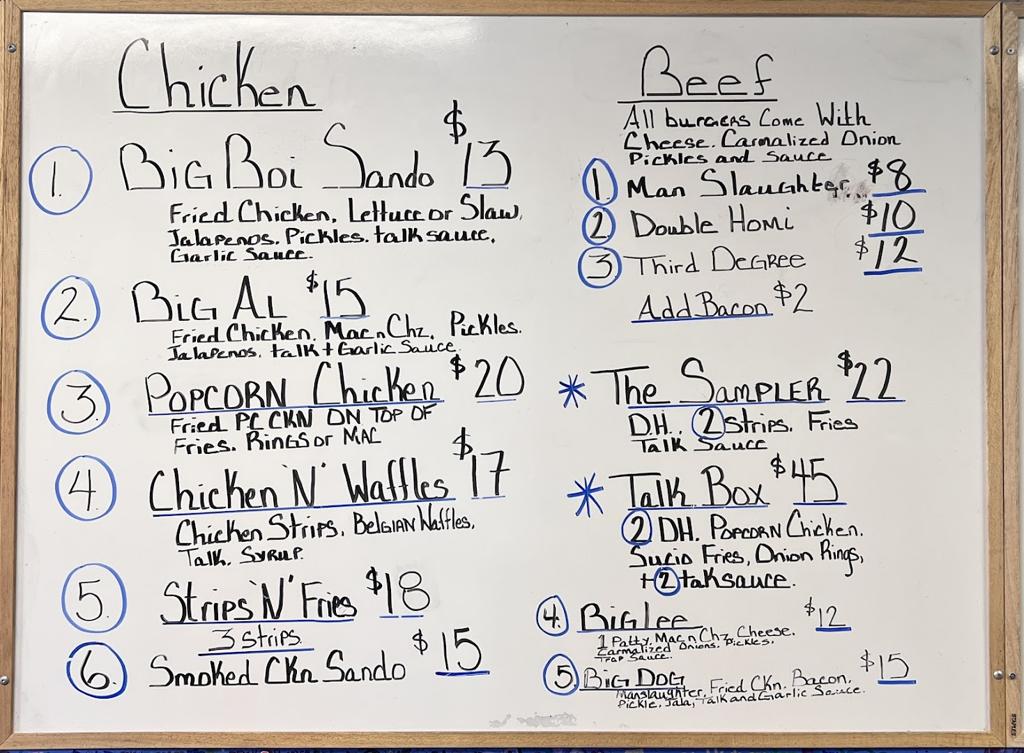 Chicken
1. Big Boi Sando $13
Fried Chicken, Lettuce or Slaw,
Jalapenos. Pickles. talk sauce,
Garlic Sauce.
2. Big Al $15
Fried Chicken. Mac n Chz. Pickles.
Jalapenos. talk + Garlic Sauce
3. Popcorn Chicken $20
Fried PC CKN ON TOP OF
Fries. Rings or Mac
4. Chicken 'N' Waffles $17
Chicken Strips. Belgian Waffles,
Talk. Syrup.
5. Strips 'N' Fries $18
3 Strips.
6. Smoked Ckn Sando $15
Beef
All burgers Come With
Cheese. Carmalized Onion
Pickles and Sauce
1. Man Slaughter $8
2 Double Homi $10
3. Third Degree $12
Add Bacon $2
* The Sampler $22
D.H., 2 Strips. Fries
Talk Sauce
* Talk Box $45
2 DH. Popcorn Chicken.
Sucio Fries, Onion Rings,
+ 2 talk sauce.
4. Big Lee $12
1 Patty, Mac n Chz, Cheese.
Carmalized Onions. Pickles,
Trap Sauce.
5 Big Dog $15
Manslaughter, Fried Ckn. Bacon,
Pickle, Jala, Talk and Garlic Sauce.
STAPLES